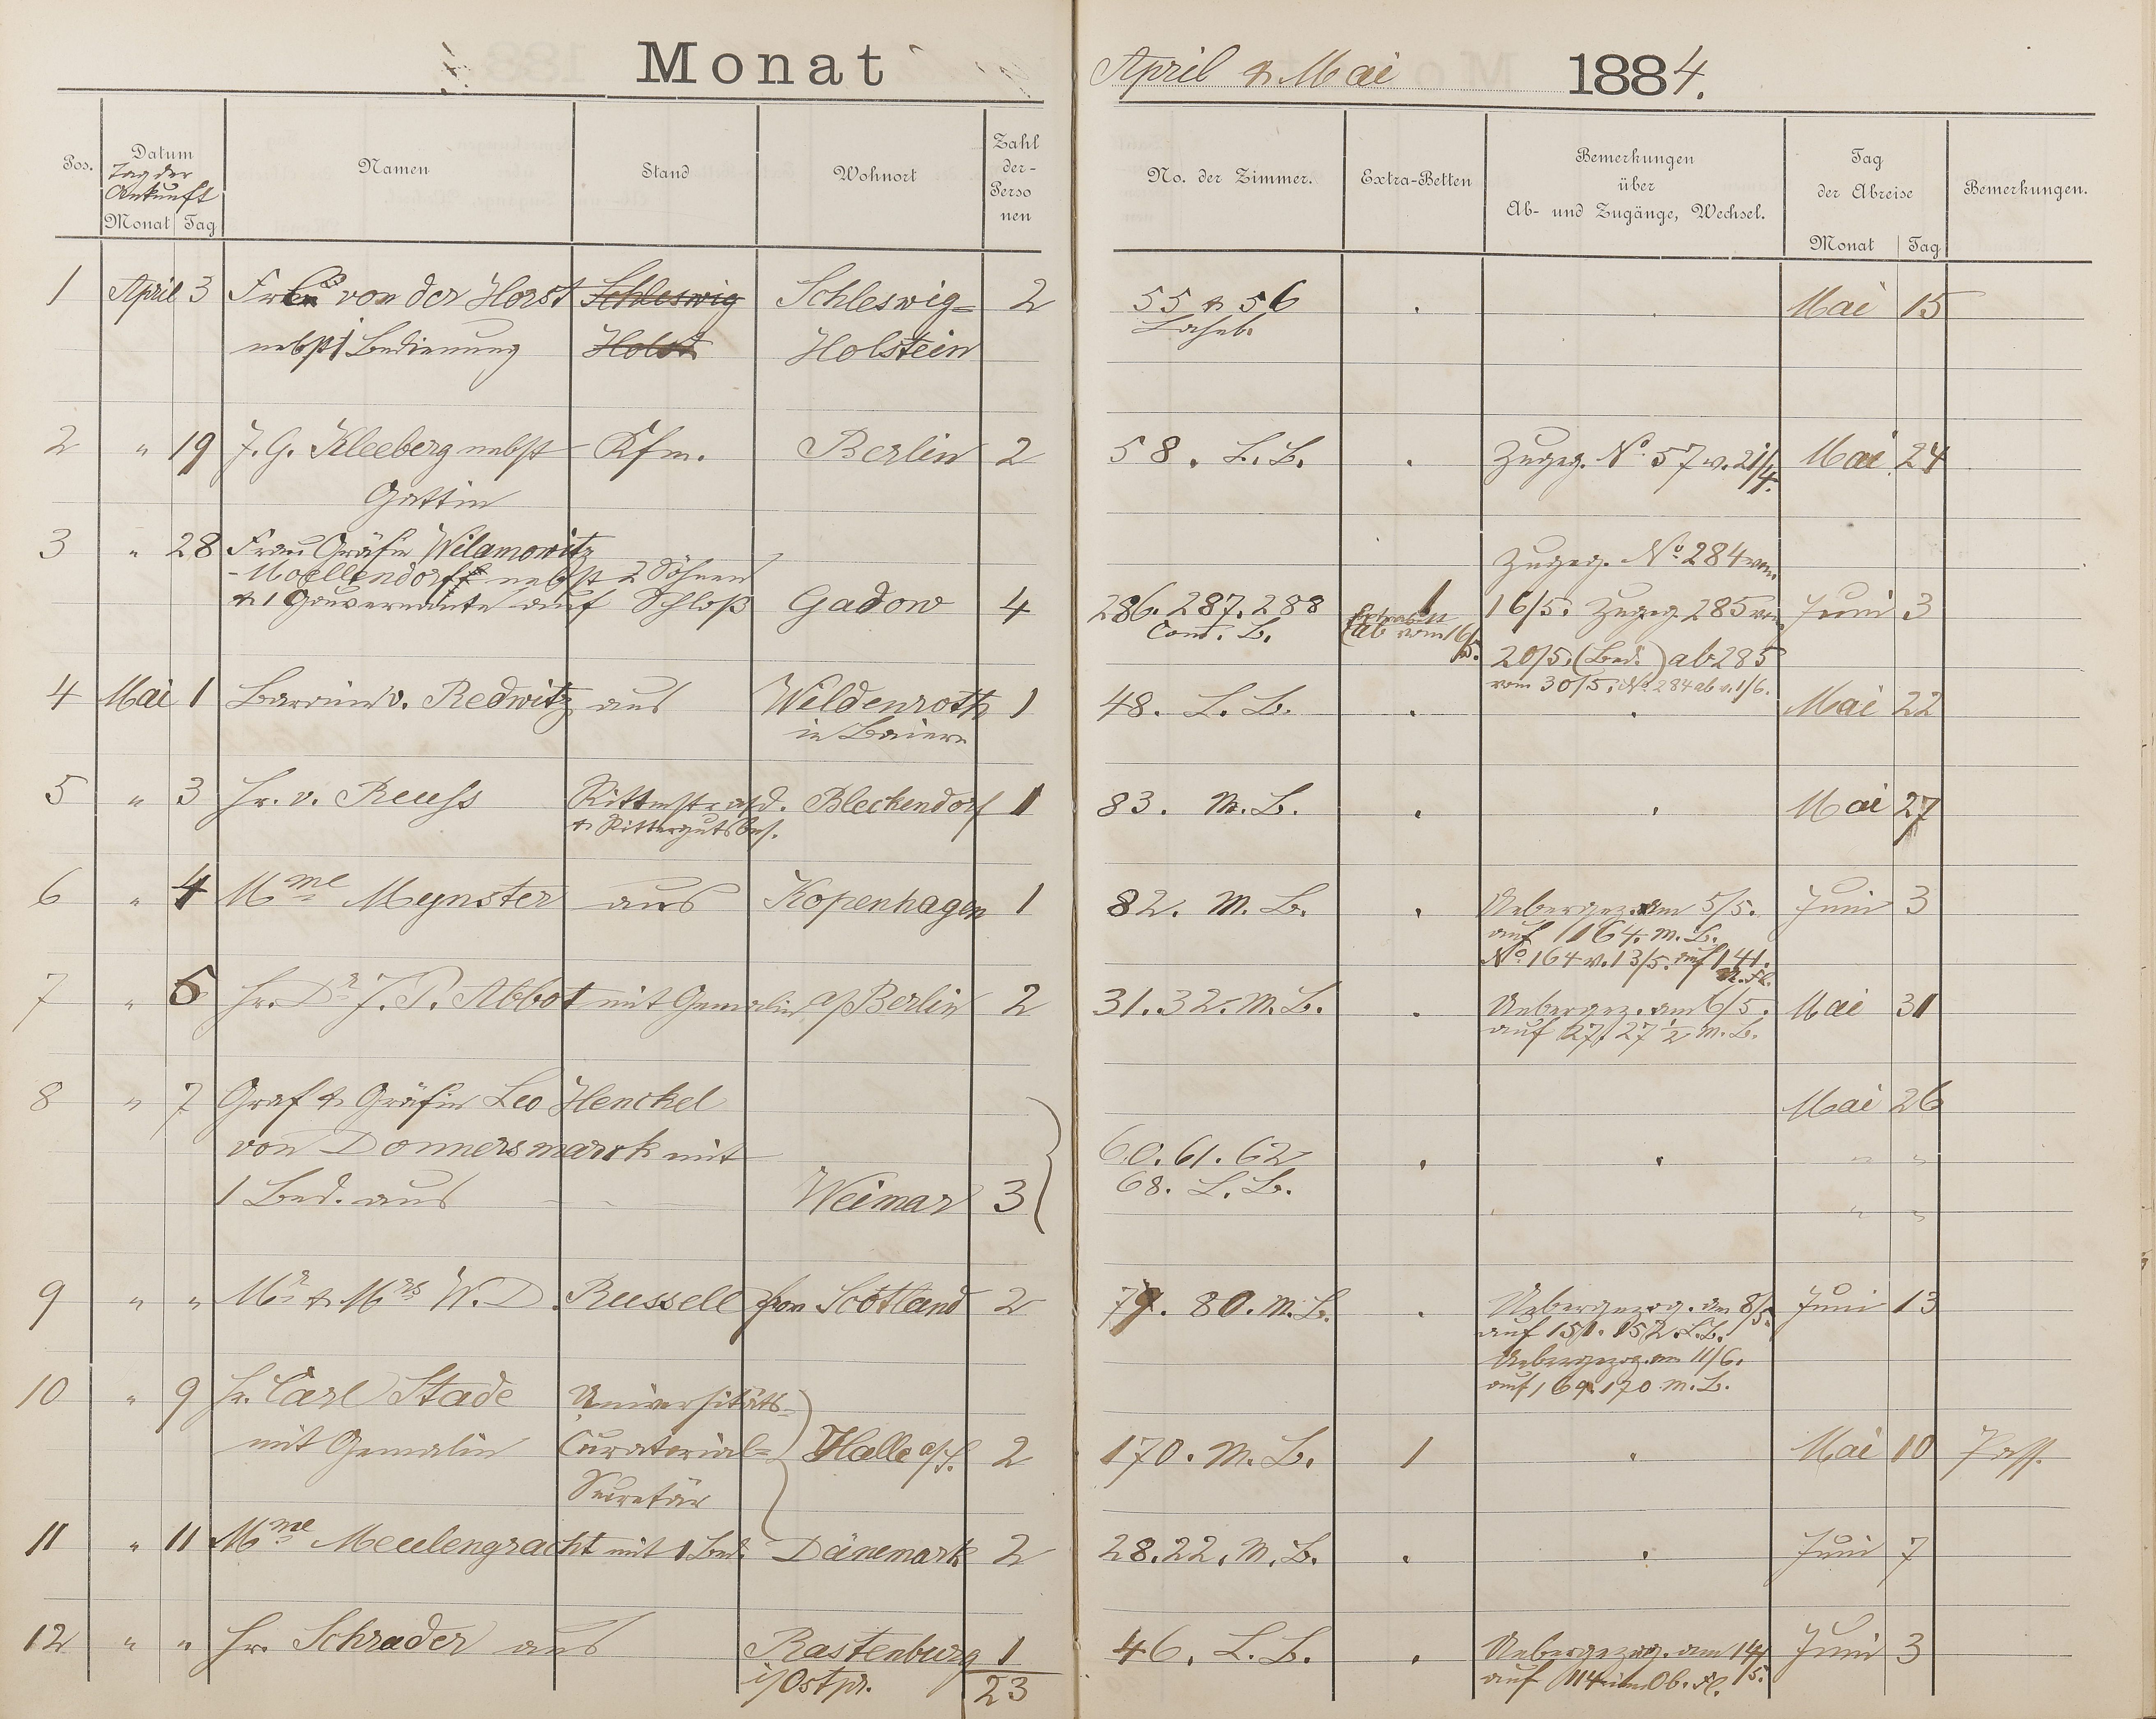 Monat April & Mai 1884.
Pos. Datum Namen Stand Wohnort Zahl der Perso nen No. der Zimmer. Extra-Betten Bemerkungen über Ab- und Zugänge, Wechsel. Tag der Abreise Bemerkungen.
Tag der Ankunft
Monat Tag Monat Tag
1 April 3 von der Horst Schleswig Schleswig= 2 55 & 56 . . Mai 15
nebst 1 Bedienung Holst Holstein
2 " 19 J. G. Kleeberg nebst Kfm. Berlin 2 58. L.B. . Zugeg. No. 57 v. 21/4. Mai 24
Gattin
3 " 28 Frau Gräfin Wilamowitz Zugeg. No. 284 vom
-Moellendorff nebst 2 Söhnen
& 1 Gouvernante auf Schloß Gadow 4 286. 287. 288 1 16/5. Zugeg. 285 vom Juni 3
Cont. L. Extrabett ab vom 16/5. 20/5. (Bed.) ab 285
vom 30/5. No. 284 ab v. 1/6.
4 Mai 1 Baronin v. Redwitz aus Wildenroth 1 48. L.B. . . Mai 22
in Baiern
5 " 3 Hr. v. Reuss Rittmstr a/d. Bleckendorf 1 83. M.B. . . Mai 27
& Rittergutsbes.
6 " 4 Mme Mynster aus Kopenhagen 1 82. M.B. . Uebergez. am 5/5. Juni 3
auf 164. M.B.
No. 164 v. 13/5. auf 141.
7 " 5 Hr. Dr J. P. Abbot mit Gemalin a/Berlin 2 31. 32. M.B. . Uebergez. am 6/5. Mai 31
auf 27. 27 1/2 M.B.
8 " 7 Graf & Gräfin Leo Henckel Mai 26
von Donnersmarck mit 60. 61. 62 . . " "
1 Bed. aus Weimar 3 68. L.B. " "
9 " " Mr & Mrs W. D. Russell from Scotland 2 79. 80. M.B. . Uebergezog. am 8/5. Juni 13
auf 151. 152. L.B.
Uebergezog. am 11/6.
auf 169. 170 M.B.
10 " 9 Hr. Carl Stade Universitäts-
mit Gemalin Curatorial= Halle a/S. 2 170. M.B. 1 . Mai 10 Pass.
Secretär
11 " 11 Mme Meulengracht mit 1 Bed. Dänemark 2 28. 22. M.B. . . Juni 7
12 " " Hr. Schrader aus Rastenburg 1 46. L.B. . Uebergezog. am 14/5. Juni 3
i/Ostpr. 23 auf 114 im Ob. St.